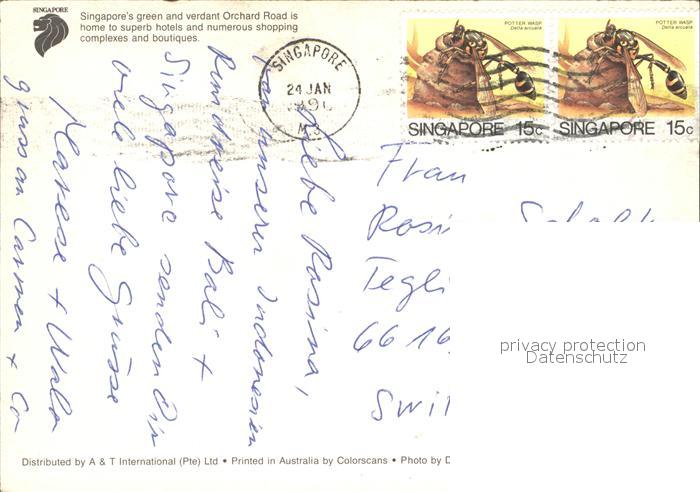 SINGAPORE
Singapore's green and verdant Orchard Road is
home to superb hotels and numerous shopping
complexes and boutiques.
SINGAPORE
24 JAN
POTTER WASP
Delta arcuata
SINGAPORE 15c
POTTER WASP
Delta arcuata
SINGAPORE 15c
Liebe Rosina,
von unserer Indonesien
Rundreise Bali +
Singapore senden Dir
viele liebe Grüsse
Marese + Wala
gruss an Carmen + Co
Frau
Rosi
Tegli
6616
Swi
privacy protection
Datenschutz
Distributed by A & T International (Pte) Ltd • Printed in Australia by Colorscans • Photo by